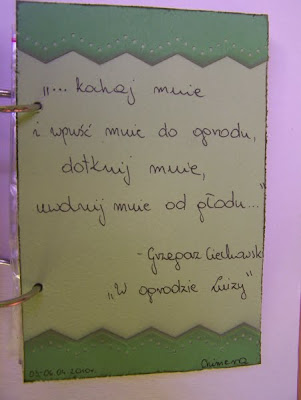 „... kochaj mnie
i wpuść mnie do ogrodu,
dotknij mnie,
uwolnij mnie od głodu..."
- Grzegorz Ciechowski
„W ogrodzie Luizy"
05-06.04.2010r.
Chimera